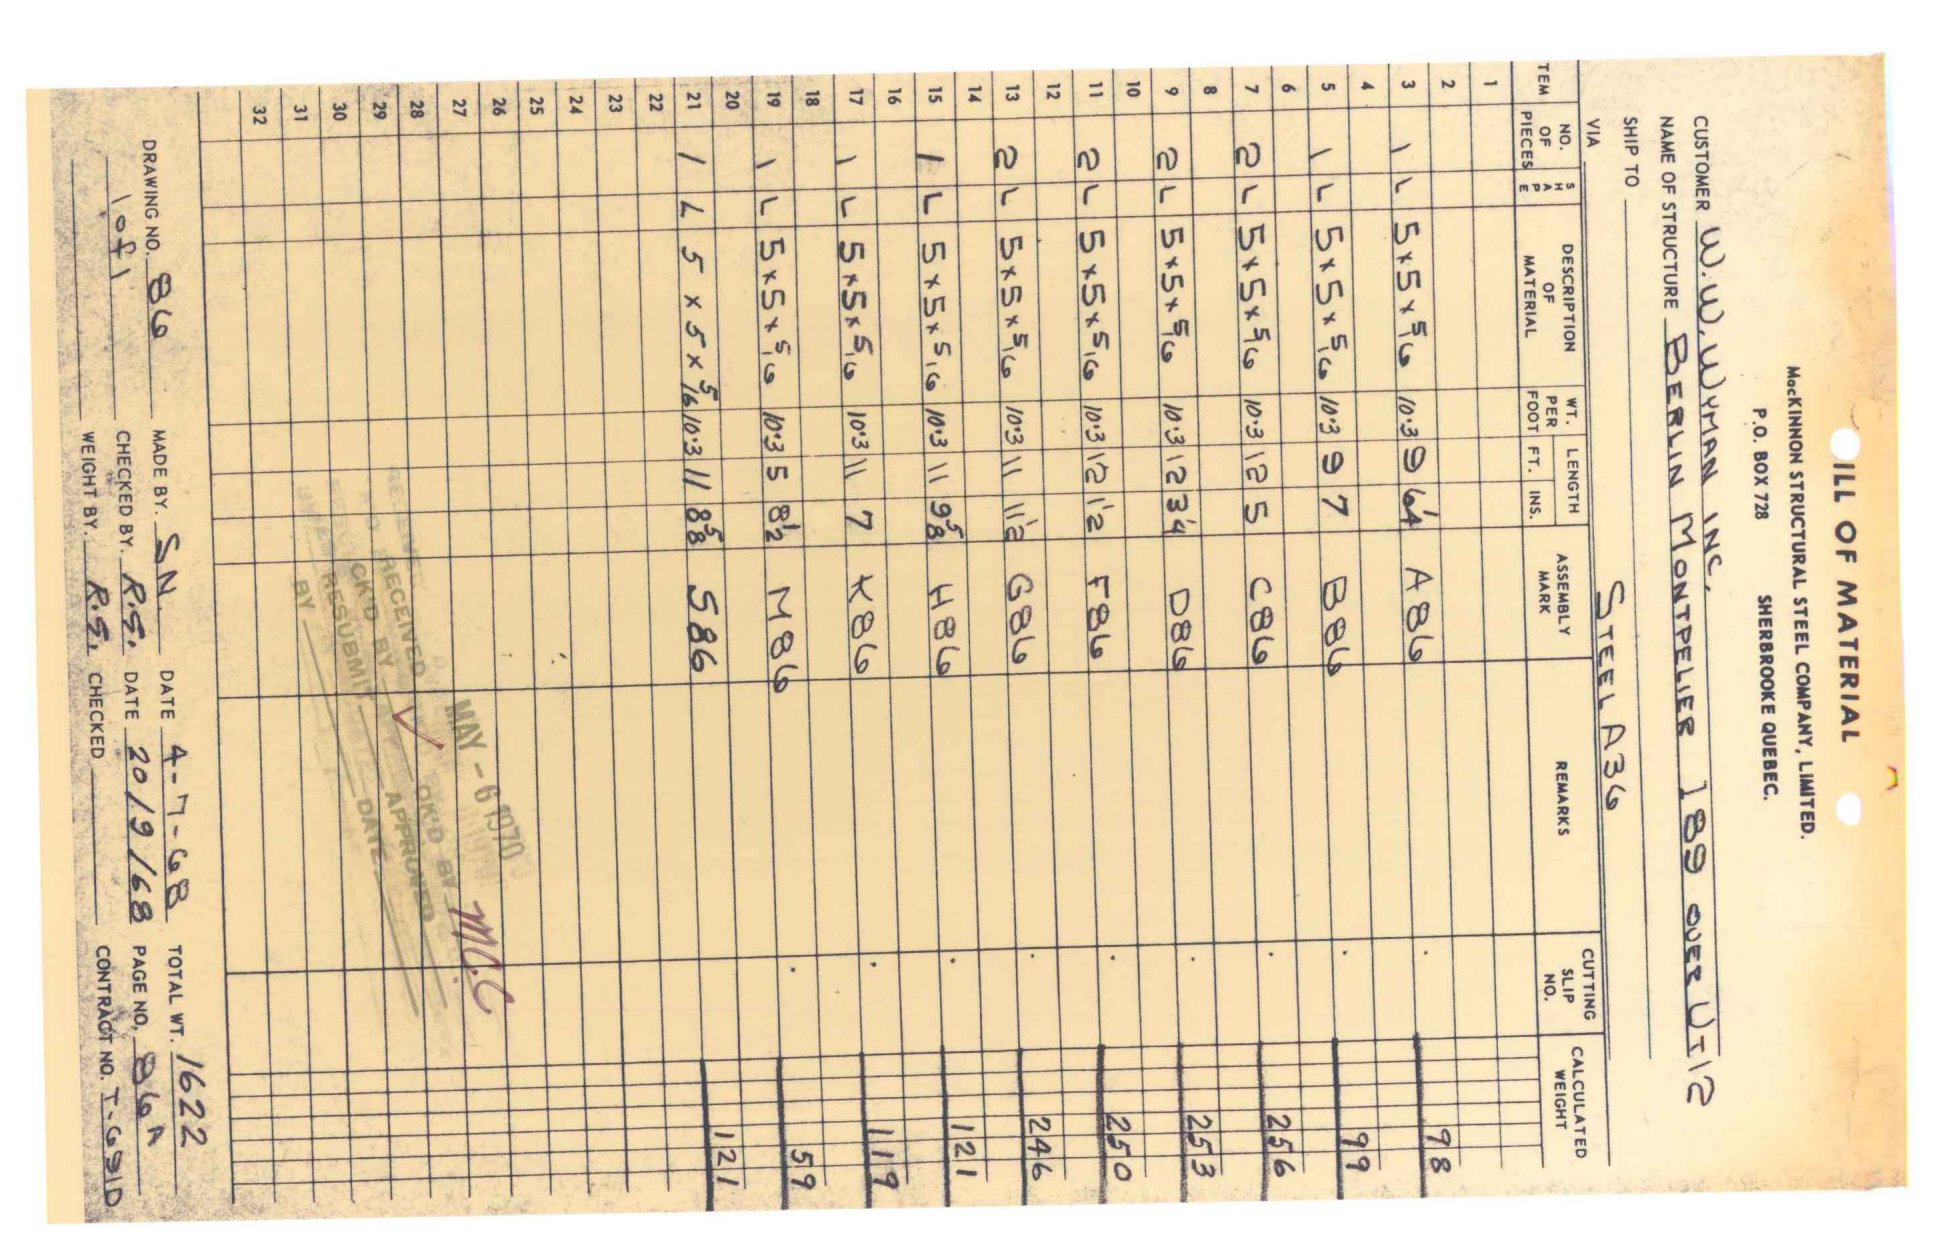 ILL OF MATERIAL
MacKINNON STRUCTURAL STEEL COMPANY, LIMITED.
P.O. BOX 728 SHERBROOKE QUEBEC.
CUSTOMER W.W. WYMAN INC.
NAME OF STRUCTURE BERLIN MONTPELIER 189 OVER UT12
SHIP TO
VIA STEEL A36
ITEM NO. OF PIECES SHAPE DESCRIPTION OF MATERIAL WT. PER FOOT LENGTH FT. INS. ASSEMBLY MARK REMARKS CUTTING SLIP NO. CALCULATED WEIGHT
1
2
3 1 L 5x5x5/16 10.3 9 6 1/4 A86 98
4
5 1 L 5x5x5/16 10.3 9 7 B86 99
6
7 2 L 5x5x5/16 10.3 12 5 C86 256
8
9 2 L 5x5x5/16 10.3 12 3 1/4 D86 253
10
11 2 L 5x5x5/16 10.3 12 1 1/2 F86 250
12
13 2 L 5x5x5/16 10.3 11 11 1/2 G86 246
14
15 1 L 5x5x5/16 10.3 11 9 5/8 H86 121
16
17 1 L 5x5x5/16 10.3 11 7 K86 119
18
19 1 L 5x5x5/16 10.3 5 8 1/2 M86 59
20
21 1 L 5x5x5/16 10.3 11 8 5/8 S86 121
22
23
24
25
26
27
28
29
30
31
32
MAY - 6 1970
M.C
RECEIVED OK'D BY
CK'D BY APPROVED
RESUBMIT DATE
BY
DRAWING NO. 86 MADE BY. SN. DATE 4-7-68 TOTAL WT. 1622
1 of 1 CHECKED BY. R.S. DATE 20/9/68 PAGE NO. 86A
WEIGHT BY. R.S. CHECKED CONTRACT NO. T-631D